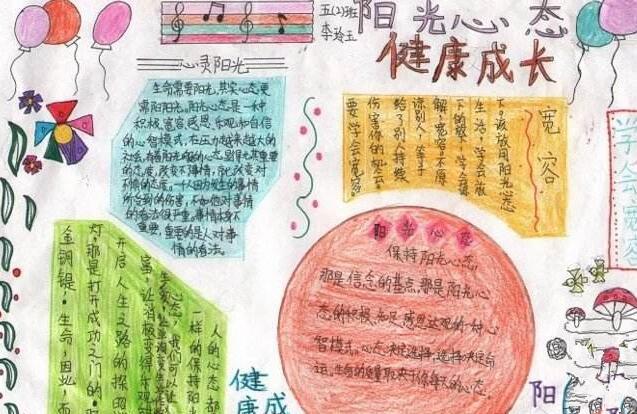 五(2)班
李玲玉
阳光心态
健康成长
心灵阳光
生命需要阳光,其实心态更
需阳阳光。阳光心态是一种
积极、宽容、感恩、乐观和自信
的心智模式。在压力越来越大的
社会,有着阳光般的心态,显得尤其重要
的态度,改变不事情,
一个人因为发生的事情
所受到的伤害,不如他对事情
的看法更严重。事情本身不
重要,重要的是人对事
情的看法。
宽容
下。该放用阳光心态
生活,学会放
下的放下,学会谅
解,宽容。不原
谅别人,等于
给了别人持续
伤害你的机会。
要学会宽容。
学会宽容
阳光心态
保持阳光心态,
那是信念的基点,那是阳光心
态的积极、知足、感恩、达观的一种心
智模式。心态决定选择,选择决定命
运。生命的质量取决于你每天的心态。
人的心态都
一样的保持阳光
们可以让
蜜,让消极变得乐观
开启人生之路的探照
灯,那是打开成功之门的
金钥匙。生命,因此,而
健康成
阳